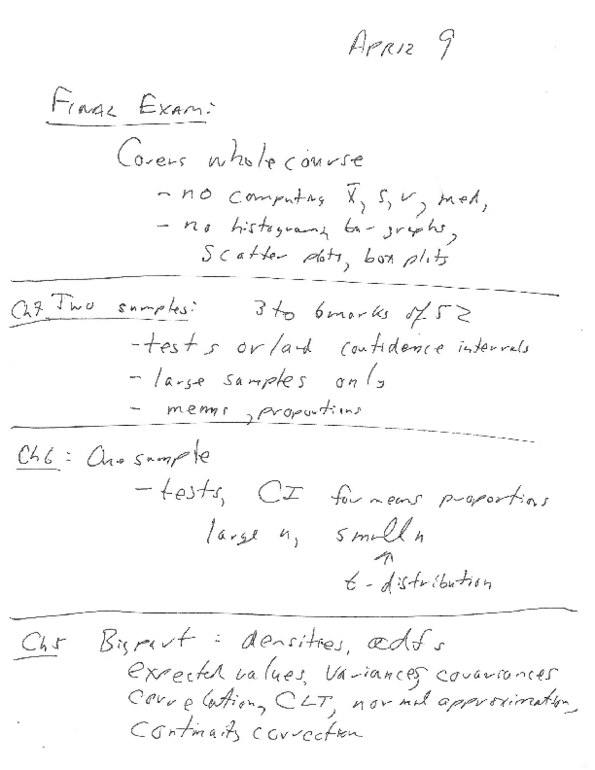 APRIL 9
FINAL EXAM:
Covers whole course
- no computing x̄, s, r, med,
- no histograms, bar-graphs,
scatter plots, box plots
Ch7 Two samples: 3 to 6 marks of 52
- tests or/and confidence intervals
- large samples only
- means, proportions
Ch6: One sample
- tests, CI for means proportions
large n, small n
↑
t-distribution
Ch5 Big part: densities, cdfs
expected values, variances, covariances
correlation, CLT, normal approximation,
continuity correction